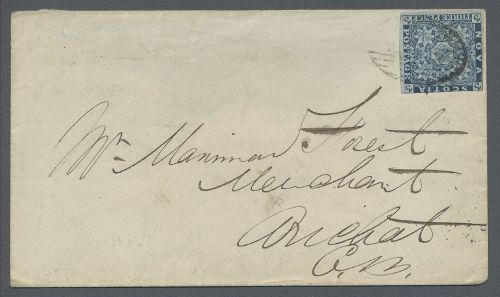 NOVA
THREE PENCE
SCOTIA
POSTAGE
Mr. Maximian Forest
Merchant
Arichat
C.B.